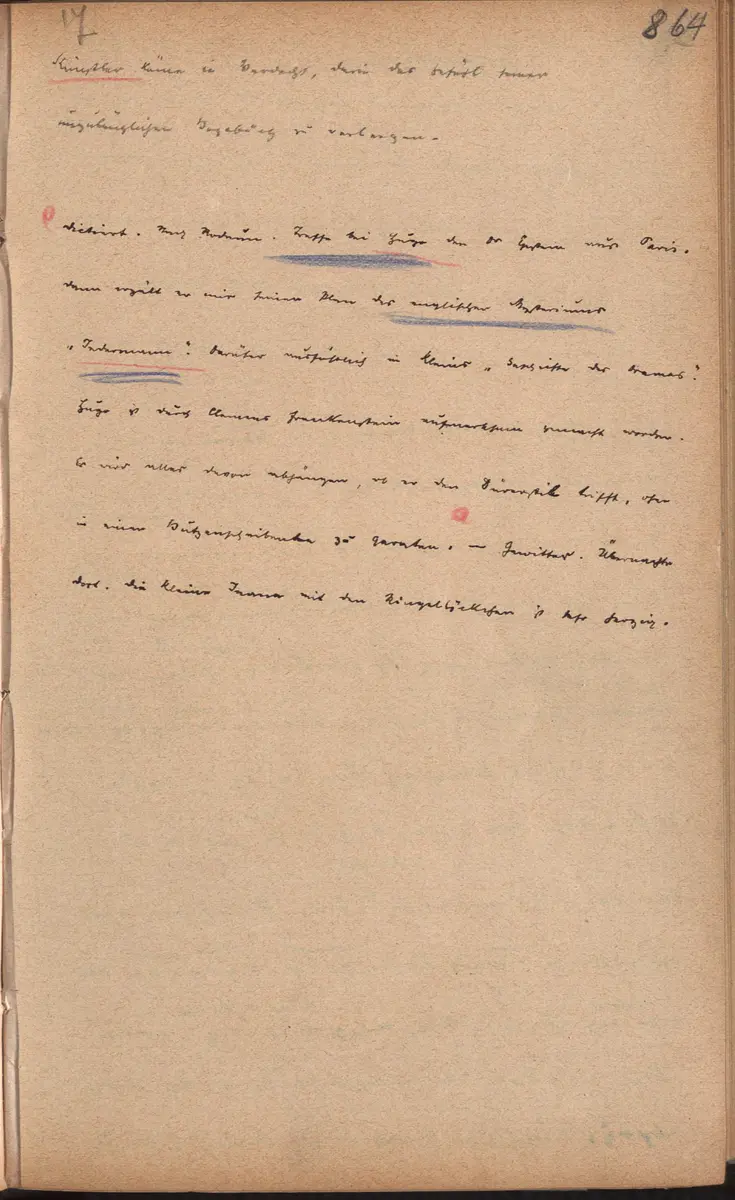 17
864
Künstler käme in Verdacht, darin das Gefühl seiner
unzulänglichen Begabung zu verbergen.
dictiert. Nach Rodaun. Treffe bei Hugo den Dr Epstein aus Paris.
dann erzält er mir seinen Plan des englischen Mysteriums
„Jedermann“. Darüber ausführlich in Kleins „Geschichte des Dramas“.
Hugo ist durch Clemens Franckenstein aufmerksam gemacht worden.
Es wird alles davon abhängen, ob er den Dürerstil trifft, ohne
in einen Butzenscheibenton zu geraten. – Gewitter. Übernachte
dort. Die kleine mit den Ringellöckchen ist sehr herzig.